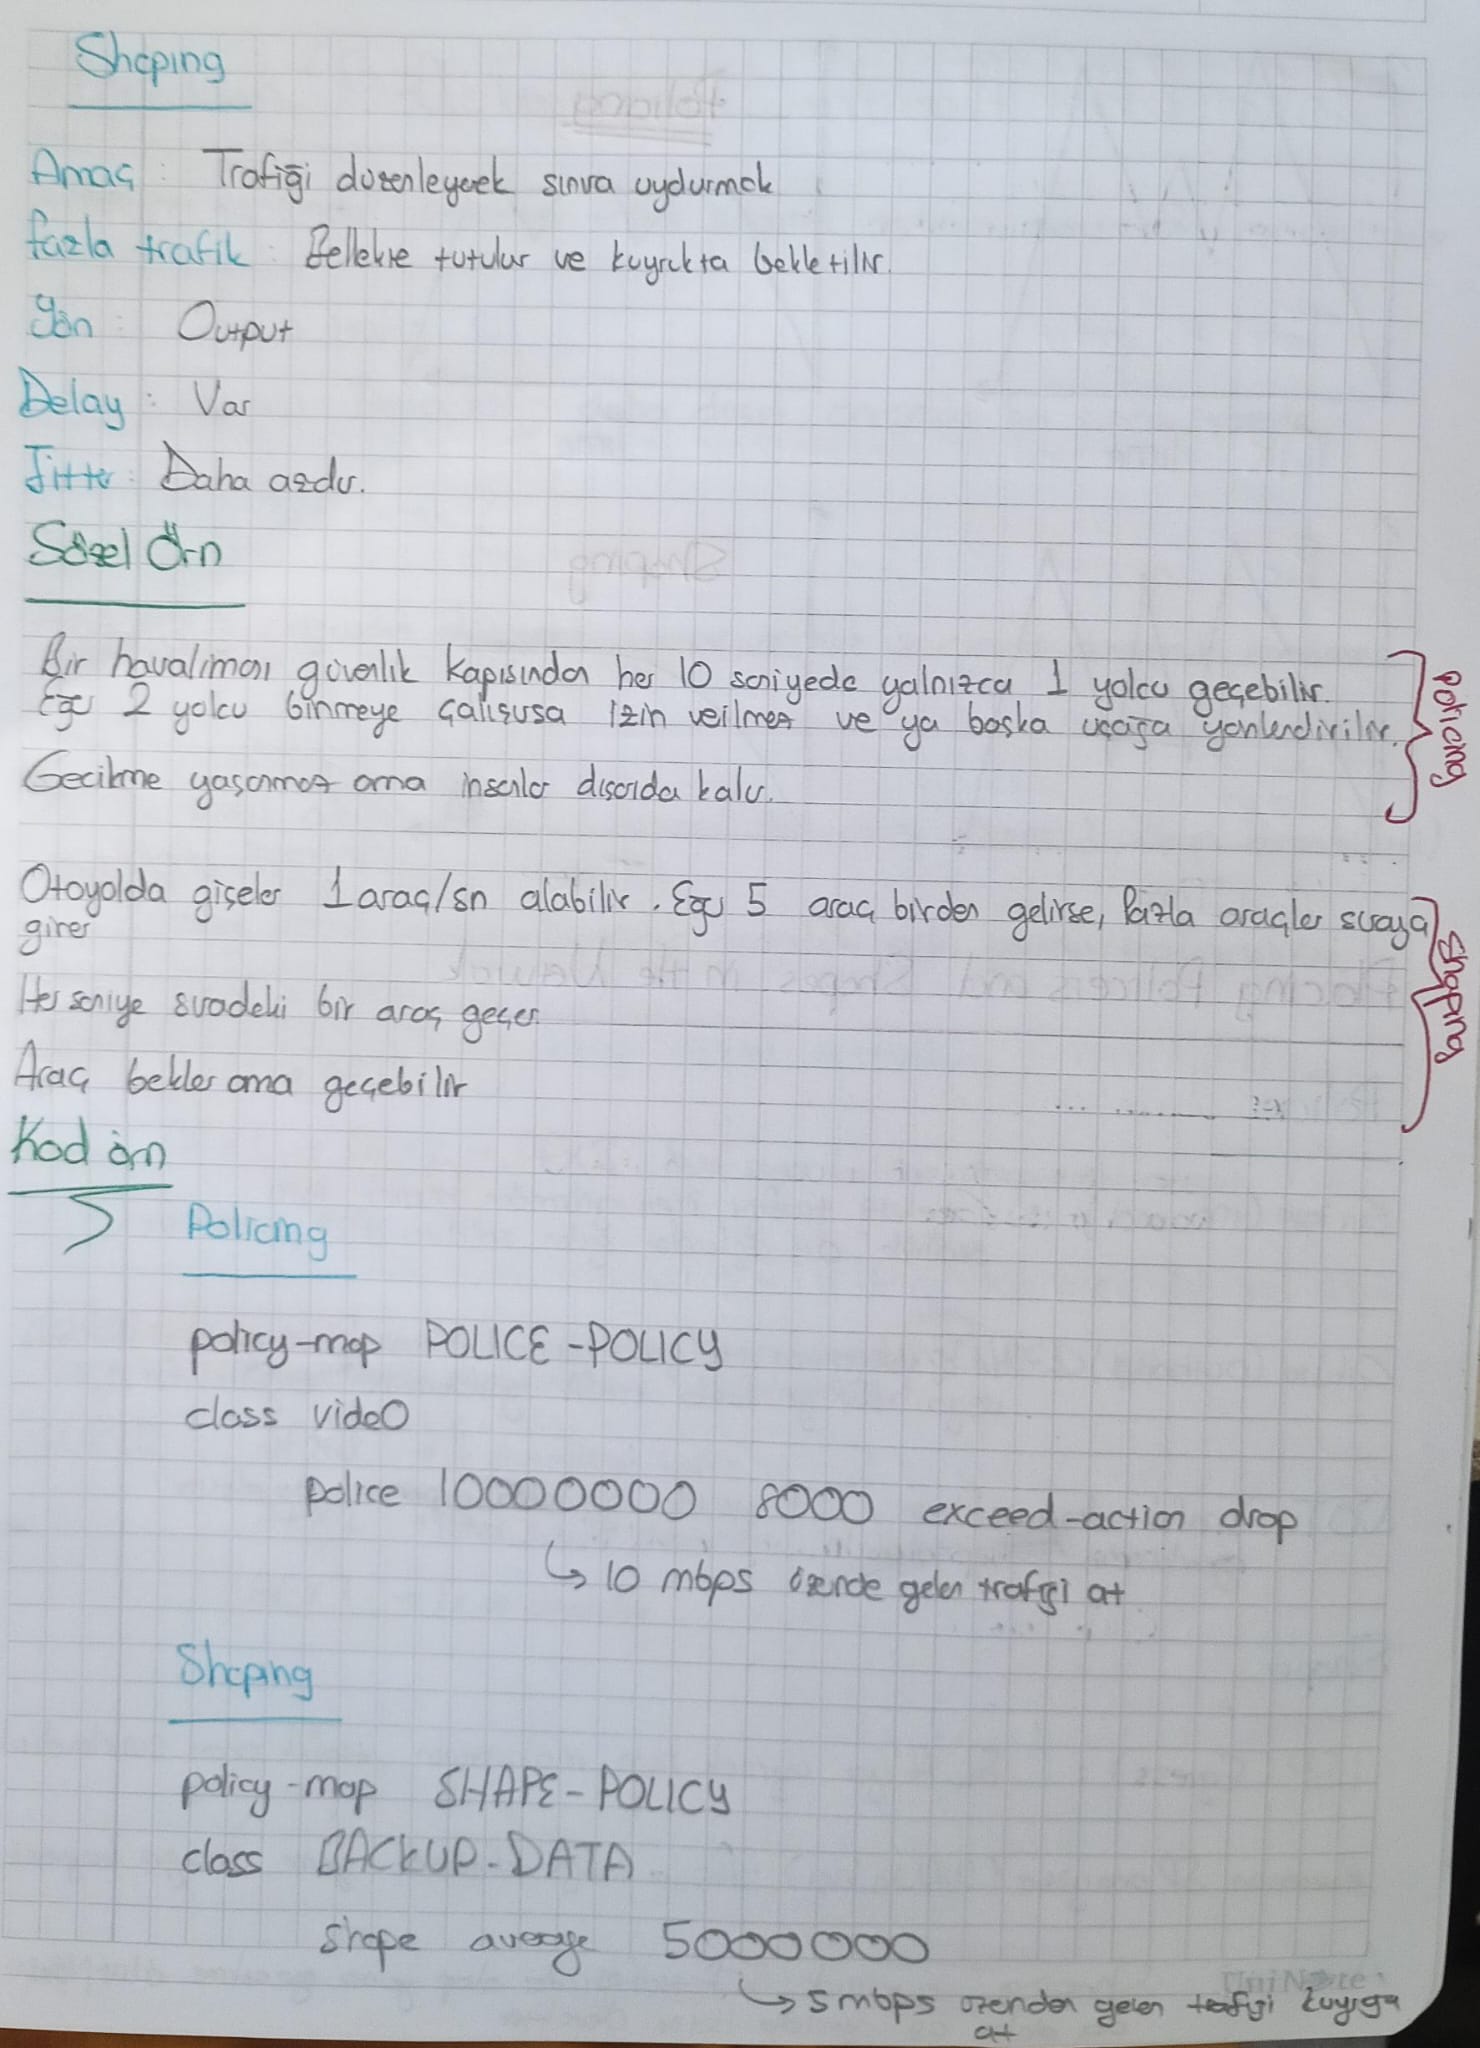 Shaping
Amaç : Trafiği düzenleyerek sınıra uydurmak
fazla trafik : Bellekte tutulur ve kuyrukta bekletilir.
Yön : Output
Delay : Var
Jitter : Daha azdır.
Sözel Örn
Bir havalimanı güvenlik kapısından her 10 saniyede yalnızca 1 yolcu geçebilir.
Eğer 2 yolcu binmeye çalışırsa izin verilmez ve ya başka uçağa yönlendirilir.
Gecikme yaşanmaz ama insanlar dışarıda kalır.
Policing
Otoyolda gişeler 1 araç/sn alabilir. Eğer 5 araç birden gelirse, fazla araçlar sıraya
girer
Her saniye sıradaki bir araç geçer.
Araç bekler ama geçebilir
Shaping
Kod örn
Policing
policy-map POLICE-POLICY
class videO
police 10000000 8000 exceed-action drop
↳ 10 mbps üzerinde gelen trafiği at
Shaping
policy-map SHAPE-POLICY
class BACKUP-DATA
shape average 5000000
↳ 5 mbps üzerinden gelen trafiği kuyruğa
at
UniNote